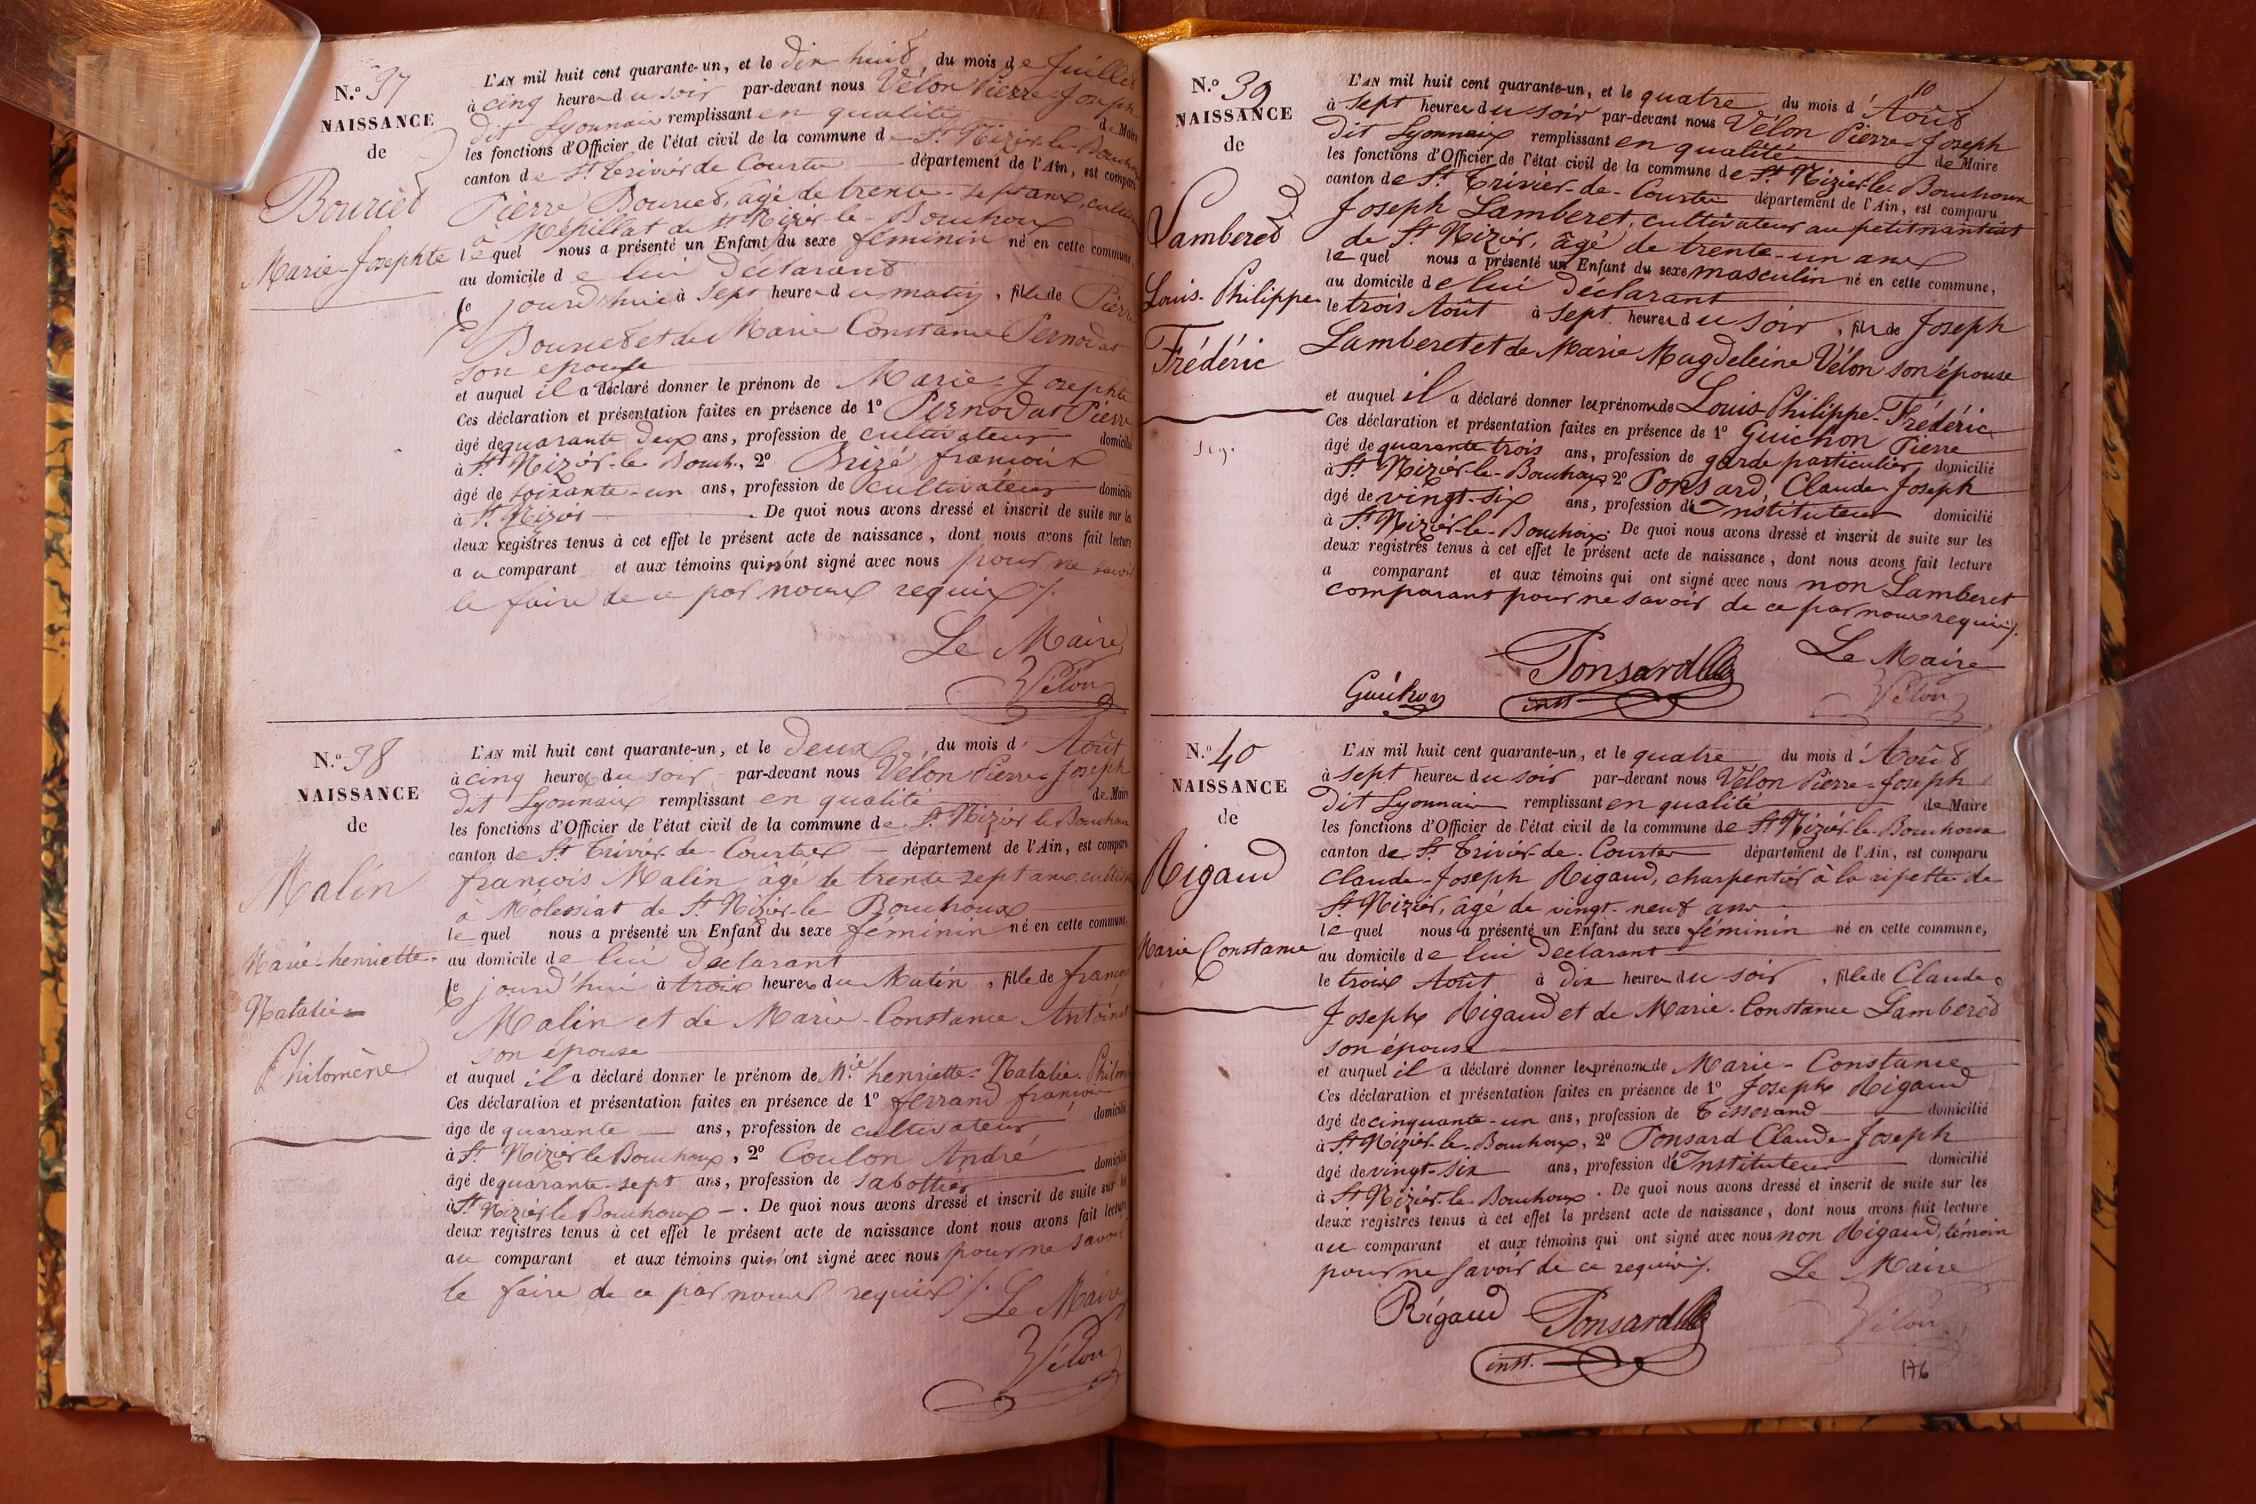 N.º 37
NAISSANCE
de
Bouriet
Marie-Josephte
L'AN mil huit cent quarante-un, et le dix huit, du mois de Juillet
à cinq heures du soir par-devant nous Vélon Pierre-Joseph
dit Lyonnais remplissant en qualité de Maire
les fonctions d'Officier de l'état civil de la commune de St Nizier-le-Bouchoux
canton de St Trivier de Courtes département de l'Ain, est comparu
Pierre Bouriet, âgé de trente-sept ans, cultiv
à Mépillat de St Nizier-le-Bouchoux
lequel nous a présenté un Enfant du sexe féminin né en cette commune,
au domicile de lui déclarant
le jourd'hui à sept heures du matin, fille de Pierre
Bouriet et de Marie Constance Pernodat
son épouse
et auquel il a déclaré donner le prénom de Marie-Josephte
Ces déclaration et présentation faites en présence de 1º Pernodat Pierre
âgé de quarante deux ans, profession de cultivateur domicilié
à St Nizier-le-Bouch., 2º Brizé françois
âgé de soixante-un ans, profession de cultivateur domicilié
à St Nizier. De quoi nous avons dressé et inscrit de suite sur les
deux registres tenus à cet effet le présent acte de naissance, dont nous avons fait lecture
au comparant et aux témoins qui n'ont signé avec nous pour ne savoir
le faire de ce par nous requis /.
Le Maire
Vélon
N.º 38
NAISSANCE
de
Malin
Marie-henriette-
Natalie-
Philomène
L'AN mil huit cent quarante-un, et le deux, du mois d'Août
à cinq heures du soir par-devant nous Vélon Pierre-Joseph
dit Lyonnais remplissant en qualité de Maire
les fonctions d'Officier de l'état civil de la commune de St Nizier le Bouchoux
canton de St Trivier-de-Courtes département de l'Ain, est comparu
françois Malin âgé de trente sept ans, cultiv
à Molessiat de St Nizier-le Bouchoux
lequel nous a présenté un Enfant du sexe féminin né en cette commune,
au domicile de lui déclarant
le jourd'hui à trois heures du Matin, fille de françois
Malin et de Marie-Constance Antoinet
son épouse
et auquel il a déclaré donner le prénom de Mie henriette-Natalie-Philom
Ces déclaration et présentation faites en présence de 1º ferrand françois
âgé de quarante ans, profession de cultivateur domicilié
à St Nizier le Bouchoux, 2º Coulon André
âgé de quarante-sept ans, profession de sabottier domicilié
à St Nizier le Bouchoux. De quoi nous avons dressé et inscrit de suite sur les
deux registres tenus à cet effet le présent acte de naissance dont nous avons fait lecture
au comparant et aux témoins qui n'ont signé avec nous pour ne savoir
le faire de ce par nous requis /. Le Maire
Vélon
N.º 39
NAISSANCE
de
Lamberet
Louis-Philippe
Frédéric
L'AN mil huit cent quarante-un, et le quatre, du mois d'Août
à sept heures du soir par-devant nous Vélon Pierre-Joseph
dit Lyonnaix remplissant en qualité de Maire
les fonctions d'Officier de l'état civil de la commune de St Nizier-le-Bouchoux
canton de St Trivier-de-Courtes département de l'Ain, est comparu
Joseph Lamberet, cultivateur au petit nantiat
de St Nizier, âgé de trente-un ans
lequel nous a présenté un Enfant du sexe masculin né en cette commune,
au domicile de lui déclarant
le trois Août à sept heures du soir, fils de Joseph
Lamberet et de Marie Magdeleine Vélon son épouse
et auquel il a déclaré donner les prénoms de Louis Philippe-Frédéric
Ces déclaration et présentation faites en présence de 1º Guichon Pierre
âgé de quarante trois ans, profession de garde particulier, domicilié
à St Nizier-le-Bouchoux 2º Ponsard Claude-Joseph
âgé de vingt-six ans, profession d'Instituteur domicilié
à St Nizier-le-Bouchoux. De quoi nous avons dressé et inscrit de suite sur les
deux registres tenus à cet effet le présent acte de naissance, dont nous avons fait lecture
a comparant et aux témoins qui ont signé avec nous non Lamberet
comparant pour ne savoir de ce par nous requis /.
Ponsard Le Maire
Guichon inst. Vélon
N.º 40
NAISSANCE
de
Rigaud
Marie Constance
L'AN mil huit cent quarante-un, et le quatre, du mois d'Août
à sept heures du soir par-devant nous Vélon Pierre-Joseph
dit Lyonnais remplissant en qualité de Maire
les fonctions d'Officier de l'état civil de la commune de St Nizier-le-Bouchoux
canton de St Trivier-de-Courtes département de l'Ain, est comparu
Claude-Joseph Rigaud, charpentier à la ripette de
St Nizier, âgé de vingt-neuf ans
lequel nous a présenté un Enfant du sexe féminin né en cette commune,
au domicile de lui déclarant
le trois Août à dix heures du soir, fille de Claude
Joseph Rigaud et de Marie-Constance Lamberet
son épouse
et auquel il a déclaré donner les prénoms de Marie-Constance
Ces déclaration et présentation faites en présence de 1º Joseph Rigaud
âgé de cinquante-un ans, profession de Tisserand domicilié
à St Nizier-le-Bouchoux, 2º Ponsard Claude-Joseph
âgé de vingt-six ans, profession d'Instituteur domicilié
à St Nizier-le-Bouchoux. De quoi nous avons dressé et inscrit de suite sur les
deux registres tenus à cet effet le présent acte de naissance, dont nous avons fait lecture
au comparant et aux témoins qui ont signé avec nous non Rigaud, témoin
pour ne savoir de ce requis /. Le Maire
Rigaud Ponsard Vélon
inst.
176